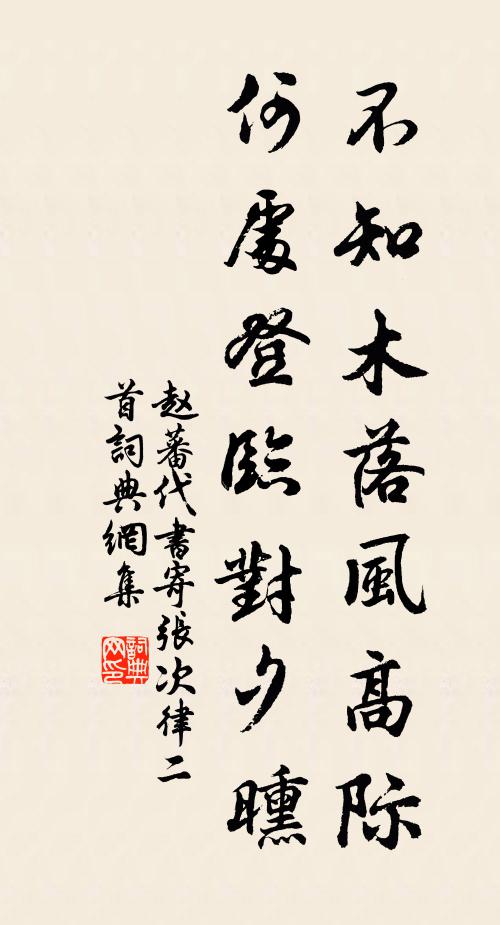 不知木落風高际
何處登臨對夕曛
赵蕃代書寄張次律二
首詞典網集
詞典
网印